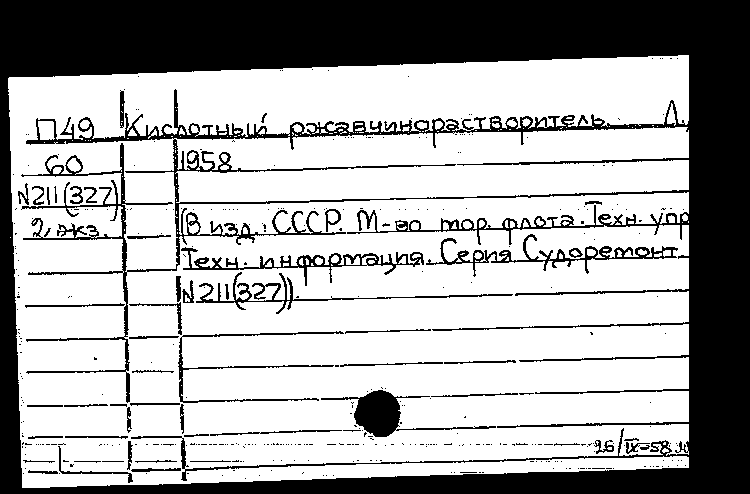 П49 Кислотный ржавчинорастворитель. Л.,
60 1958.
N211(327)
2 экз. (В изд.: СССР. М-во мор. флота. Техн. упр
Техн. информация. Серия Судоремонт.
N211(327)).
26/IX-58